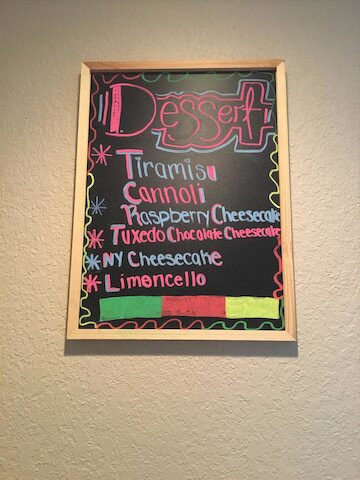 Dessert
Tiramisu
Cannoli
Raspberry Cheesecake
Tuxedo Chocolate Cheesecake
NY Cheesecake
Limoncello